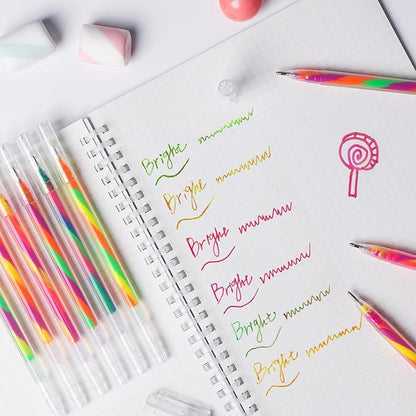 Bright
Bright
Bright
Bright
Bright
Bright